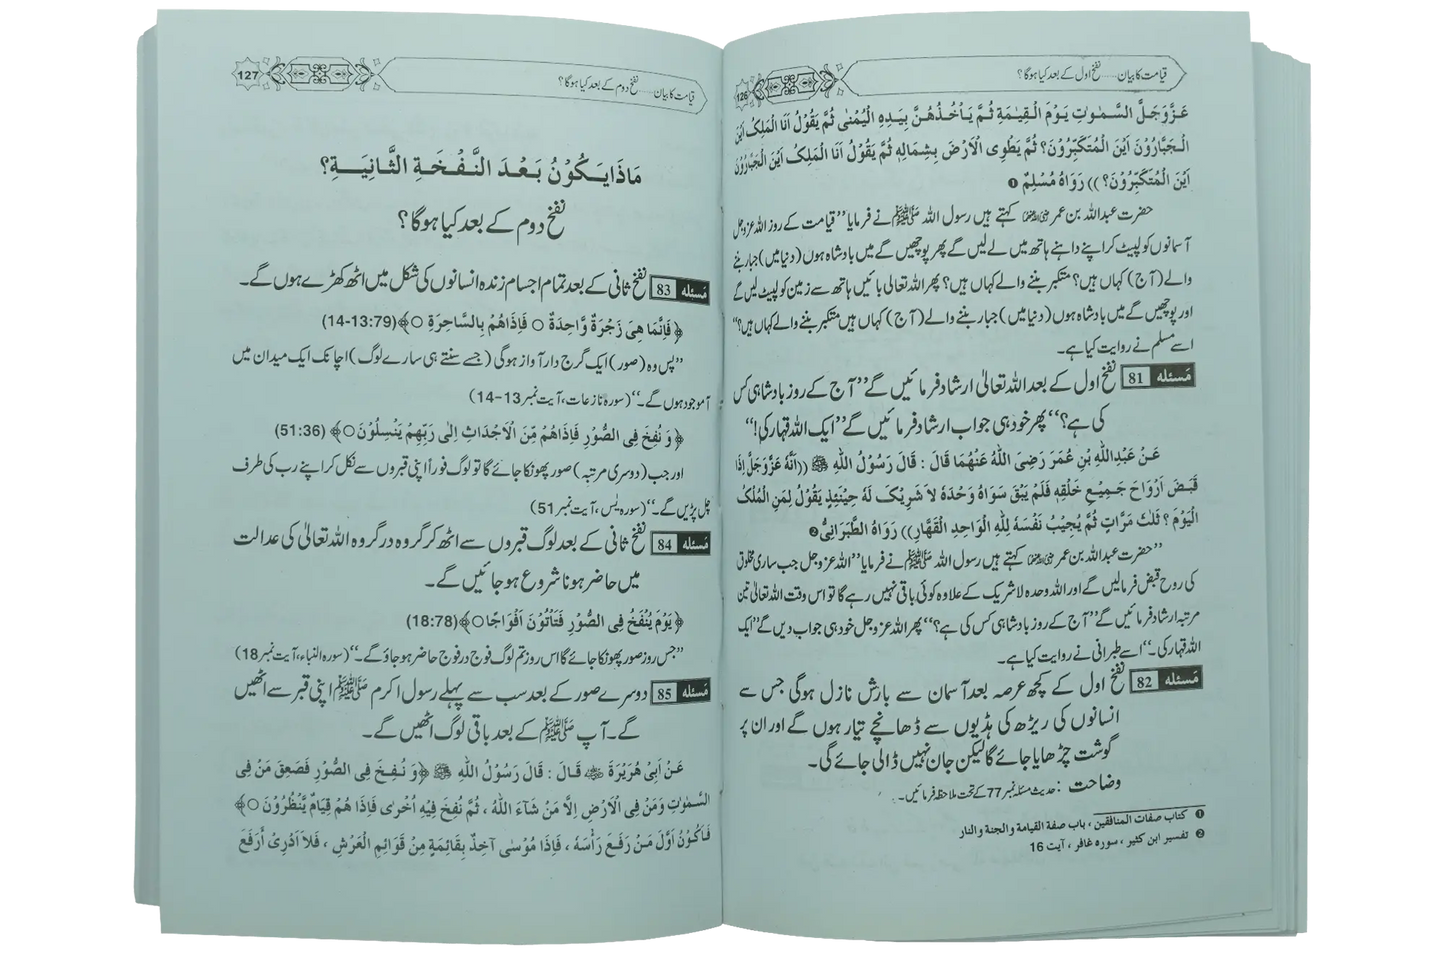 قیامت کا بیان ...... نفخ اول کے بعد کیا ہوگا؟
126
عَزَّوَجَلَّ السَّمٰوٰتِ يَوْمَ الْقِيٰمَةِ ثُمَّ يَأْخُذُهُنَّ بِيَدِهِ الْيُمْنٰى ثُمَّ يَقُوْلُ اَنَا الْمَلِكُ اَيْنَ
الْجَبَّارُوْنَ اَيْنَ الْمُتَكَبِّرُوْنَ؟ ثُمَّ يَطْوِى الْاَرْضَ بِشِمَالِهِ ثُمَّ يَقُوْلُ اَنَا الْمَلِكُ اَيْنَ الْجَبَّارُوْنَ
اَيْنَ الْمُتَكَبِّرُوْنَ؟)) رَوَاهُ مُسْلِمٌ ❶
حضرت عبداللہ بن عمر رضی اللہ عنہما کہتے ہیں رسول اللہ ﷺ نے فرمایا ’’قیامت کے روز اللہ عزوجل
آسمانوں کو لپیٹ کر اپنے داہنے ہاتھ میں لے لیں گے پھر پوچھیں گے میں بادشاہ ہوں (دنیا میں) جبار بننے
والے (آج) کہاں ہیں؟ متکبر بننے والے کہاں ہیں؟ پھر اللہ تعالیٰ بائیں ہاتھ سے زمین کو لپیٹ لیں گے
اور پوچھیں گے میں بادشاہ ہوں (دنیا میں) جبار بننے والے (آج) کہاں ہیں متکبر بننے والے کہاں ہیں؟‘‘
اسے مسلم نے روایت کیا ہے۔
مسئله 81 نفخ اول کے بعد اللہ تعالیٰ ارشاد فرمائیں گے ’’آج کے روز بادشاہی کس
کی ہے؟‘‘ پھر خود ہی جواب ارشاد فرمائیں گے ’’ایک اللہ قہار کی!‘‘
عَنْ عَبْدِاللّٰهِ بْنِ عُمَرَ رَضِىَ اللّٰهُ عَنْهُمَا قَالَ : قَالَ رَسُوْلُ اللّٰهِ ﷺ ((اَنَّهُ عَزَّوَجَلَّ اِذَا
قَبَضَ اَرْوَاحَ جَمِيْعِ خَلْقِهِ فَلَمْ يَبْقَ سِوَاهُ وَحْدَهُ لَا شَرِيْكَ لَهُ حِيْنَئِذٍ يَقُوْلُ لِمَنِ الْمُلْكُ
الْيَوْمَ ؟ ثَلٰثَ مَرَّاتٍ ثُمَّ يُجِيْبُ نَفْسَهُ لِلّٰهِ الْوَاحِدِ الْقَهَّارِ)) رَوَاهُ الطَّبَرَانِىُّ ❷
’’حضرت عبداللہ بن عمر رضی اللہ عنہما کہتے ہیں رسول اللہ ﷺ نے فرمایا ’’اللہ عزوجل جب ساری مخلوق
کی روح قبض فرما لیں گے اور اللہ وحدہ لا شریک کے علاوہ کوئی باقی نہیں رہے گا تو اس وقت اللہ تعالیٰ تین
مرتبہ ارشاد فرمائیں گے ’’آج کے روز بادشاہی کس کی ہے؟‘‘ پھر اللہ عزوجل خود ہی جواب دیں گے ’’ایک
اللہ قہار کی۔‘‘ اسے طبرانی نے روایت کیا ہے۔
مسئله 82 نفخ اول کے کچھ عرصہ بعد آسمان سے بارش نازل ہوگی جس سے
انسانوں کی ریڑھ کی ہڈیوں سے ڈھانچے تیار ہوں گے اور ان پر
گوشت چڑھایا جائے گا لیکن جان نہیں ڈالی جائے گی۔
وضاحت : حدیث مسئلہ نمبر 77 کے تحت ملاحظہ فرمائیں۔
❶ كتاب صفات المنافقين ، باب صفة القيامة والجنة والنار
❷ تفسير ابن كثير ، سوره غافر ، آيت 16
قیامت کا بیان ...... نفخ دوم کے بعد کیا ہوگا؟
127
مَاذَا يَكُوْنُ بَعْدَ النَّفْخَةِ الثَّانِيَةِ؟
نفخ دوم کے بعد کیا ہوگا؟
مسئله 83 نفخ ثانی کے بعد تمام اجسام زندہ انسانوں کی شکل میں اٹھ کھڑے ہوں گے۔
﴿ فَاِنَّمَا هِىَ زَجْرَةٌ وَّاحِدَةٌ ○ فَاِذَاهُمْ بِالسَّاهِرَةِ ○﴾(14-13:79)
’’پس وہ (صور) ایک گرج دار آواز ہوگی (جسے سنتے ہی سارے لوگ) اچانک ایک میدان میں
آموجود ہوں گے۔‘‘ (سورہ نازعات، آیت نمبر 13-14)
﴿ وَ نُفِخَ فِى الصُّوْرِ فَاِذَاهُمْ مِّنَ الْاَجْدَاثِ اِلٰى رَبِّهِمْ يَنْسِلُوْنَ○﴾ (51:36)
اور جب (دوسری مرتبہ) صور پھونکا جائے گا تو لوگ فوراً اپنی قبروں سے نکل کر اپنے رب کی طرف
چل پڑیں گے۔‘‘ (سورہ یٰس، آیت نمبر 51)
مسئله 84 نفخ ثانی کے بعد لوگ قبروں سے اٹھ کر گروہ در گروہ اللہ تعالیٰ کی عدالت
میں حاضر ہونا شروع ہو جائیں گے۔
﴿ يَوْمَ يُنْفَخُ فِى الصُّوْرِ فَتَاْتُوْنَ اَفْوَاجًا○﴾(18:78)
’’جس روز صور پھونکا جائے گا اس روز تم لوگ فوج در فوج حاضر ہو جاؤ گے۔‘‘ (سورہ النباء، آیت نمبر 18)
مسئله 85 دوسرے صور کے بعد سب سے پہلے رسول اکرم ﷺ اپنی قبر سے اٹھیں
گے۔ آپ ﷺ کے بعد باقی لوگ اٹھیں گے۔
عَنْ اَبِىْ هُرَيْرَةَ ﷺ قَالَ : قَالَ رَسُوْلُ اللّٰهِ ﷺ ﴿وَ نُفِخَ فِى الصُّوْرِ فَصَعِقَ مَنْ فِى
السَّمٰوٰتِ وَمَنْ فِى الْاَرْضِ اِلَّا مَنْ شَآءَ اللّٰهُ ، ثُمَّ نُفِخَ فِيْهِ اُخْرٰى فَاِذَا هُمْ قِيَامٌ يَّنْظُرُوْنَ ○﴾
فَاَكُوْنُ اَوَّلَ مَنْ رَفَعَ رَأْسَهُ ، فَاِذَا مُوْسٰى آخِذٌ بِقَائِمَةٍ مِنْ قَوَائِمِ الْعَرْشِ ، فَلَا اَدْرِىْ أَرَفَعَ